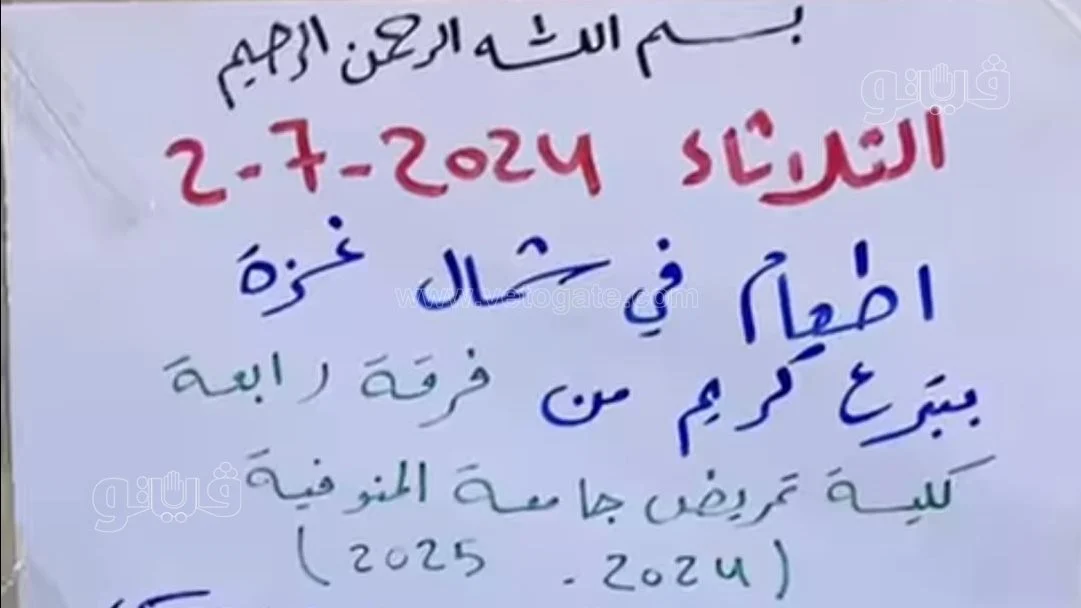 بسم الله الرحمن الرحيم
ڤيتو
الثلاثاء 2-7-2024
اطعام في شمال غزة
www.vetogate.com
بتبرع كريم من فرقة رابعة
كلية تمريض جامعة المنوفية
ڤيتو
(2024 - 2025)